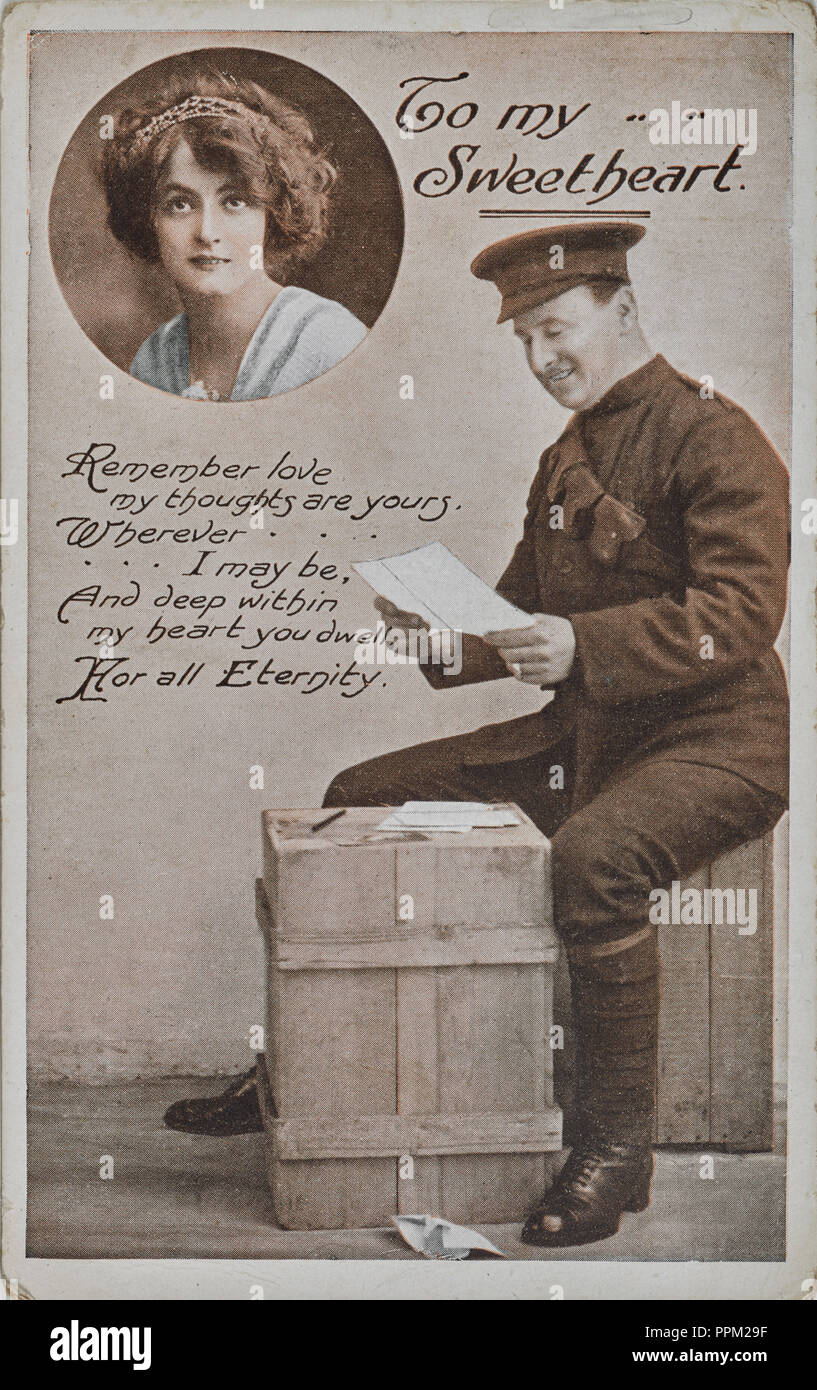 To my
Sweetheart.
Remember love
my thoughts are yours.
Wherever . . .
. . . I may be,
And deep within
my heart you dwell.
For all Eternity.
alamy
Image ID: PPM29F
www.alamy.com